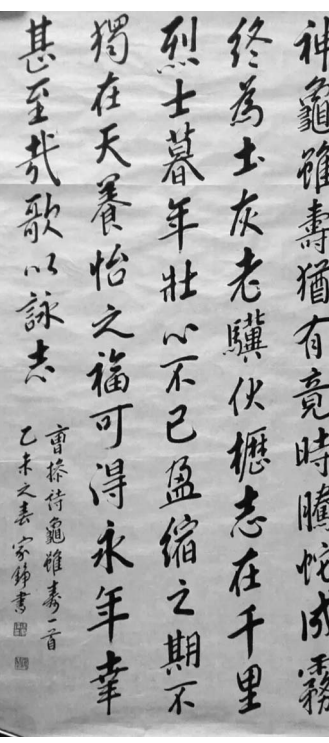 神龜雖壽猶有竟時騰蛇成霧
終為土灰老驥伏櫪志在千里
烈士暮年壯心不已盈縮之期不
獨在天養怡之福可得永年幸
甚至哉歌以詠志
曹操詩龜雖壽一首
乙未之春家錦書